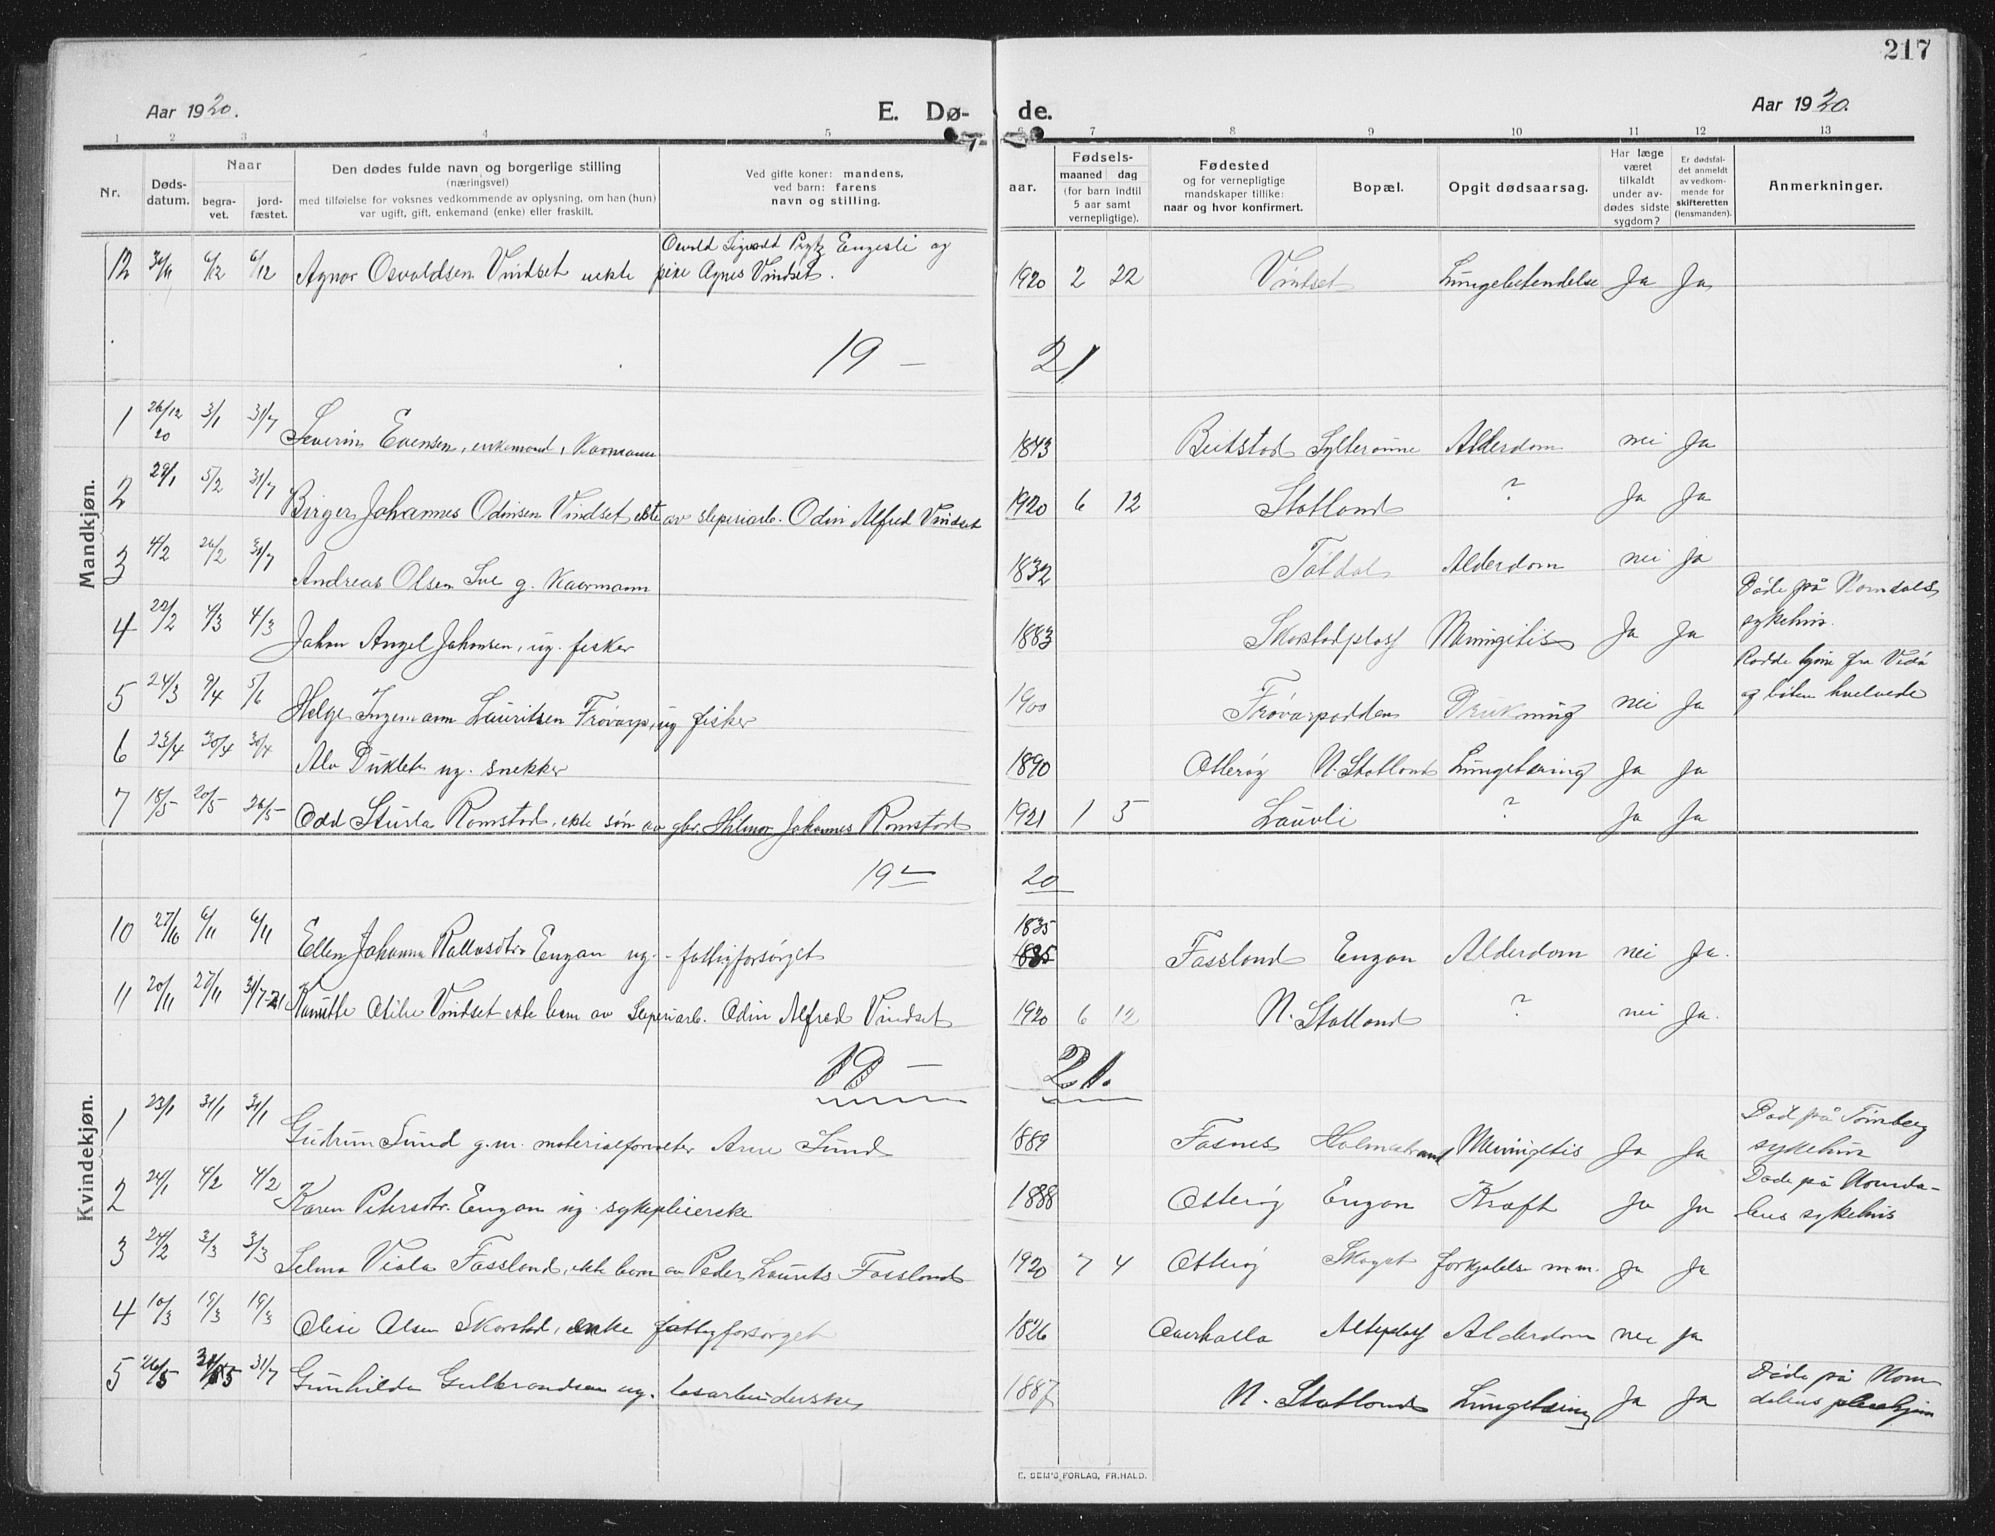 217
Aar 1920. E. Dø- de. Aar 1920.
1 2 3 4 5 6 7 8 9 10 11 12 13
Nr. Døds-datum. Naar begra-vet. jord-fæstet. Den dødes fulde navn og borgerlige stilling (næringsvei) med tilføielse for voksnes vedkommende av oplysning, om han (hun) var ugift, gift, enkemand (enke) eller fraskilt. Ved gifte koner: mandens, ved barn: farens navn og stilling. aar. Fødsels- maaned dag (for barn indtil 5 aar samt vernepligtige). Fødested og for vernepligtige mandskaper tillike: naar og hvor konfirmert. Bopæl. Opgit dødsaarsag. Har læge været tilkaldt under av-dødes sidste sygdom? Er dødsfal-det anmeldt av vedkom-mende for skifteretten (lensmanden). Anmerkninger.
Mandkjøn.
12 30/11 6/12 6/12 Agnar Osvaldsen Vindset uekte Osvald Sigvald Prytz Engesli og pike Agnes Vindset. 1920 2 22 Vindset Lungebetendelse Ja Ja
19 - 21
1 26/12 20 3/1 31/7 Severin Evensen, enkemand, Kaarmann 1843 Beitstad Sylterønne Alderdom nei Ja
2 29/1 5/2 31/7 Birger Johannes Odinsen Vindset ekte av sleperiarb. Odin Alfred Vindset 1920 6 12 Statland ? Ja Ja
3 4/2 26/2 31/7 Andreas Olsen g. Kaarmann 1832 Alderdom nei ja
4 22/2 4/3 4/3 Johan Angel Johansen, ug. fisker 1883 Skorstadplass Meningitis Ja Ja Døde på Namdals sykehus.
5 24/3 9/4 5/6 Helge Ingemann Lauritsen Frøvarp, ug fisker 1900 Frøvarpodden Drukning nei Ja Rodde hjem fra og båten hvelvede
6 23/4 30/4 30/4 Alv Duklet ug. snekker 1890 Otterøy N. Statland Lungetæring Ja Ja
7 18/5 20/5 26/5 Odd Sturla Ramstad, ekte søn av gbr. Hilmar Johannes Ramstad 1921 1 5 Lauvli ? Ja Ja
19 - 20
Kvindekjøn.
10 27/10 6/11 6/11 Ellen Johanna Engan ug. - fattigforsørget 1835 1835 Fossland Engan Alderdom nei Ja.
11 20/11 27/11 31/7-21 Otilie Vindset ekte barn av Sleperiarb. Odin Alfred Vindset 1920 6 12 N. Statland ? nei Ja.
19 - 21.
1 23/1 31/1 31/1 Gudrun Sund g.m. materialforvalter Arne Sund 1889 Fosnes Holmestrand Meningitis Ja Ja Død på Tønsberg sykehus
2 24/1 4/2 4/2 Karen Petersdtr. Engan ug. sykepleierske 1888 Otterøy Engan Kræft Ja Ja Døde på Namda-lens sykehus
3 24/2 3/3 3/3 Selma Viola Fossland, ekte barn av Peder Laurits Fossland 1920 7 4 Otterøy Skaget forkjølelse m.m. Ja Ja
4 10/3 19/3 19/3 Olise Olsen Skorstad, enke fattigforsørget 1826 Overhalla Alteplass Alderdom nei ja
5 26/5 31/7 Gunhilde Gulbrandsen ug. løsarbeiderske 1887 N. Statland Lungetæring Ja Ja Døde på Nam dalens pleiehjem
E. SEM'S FORLAG, FR.HALD.